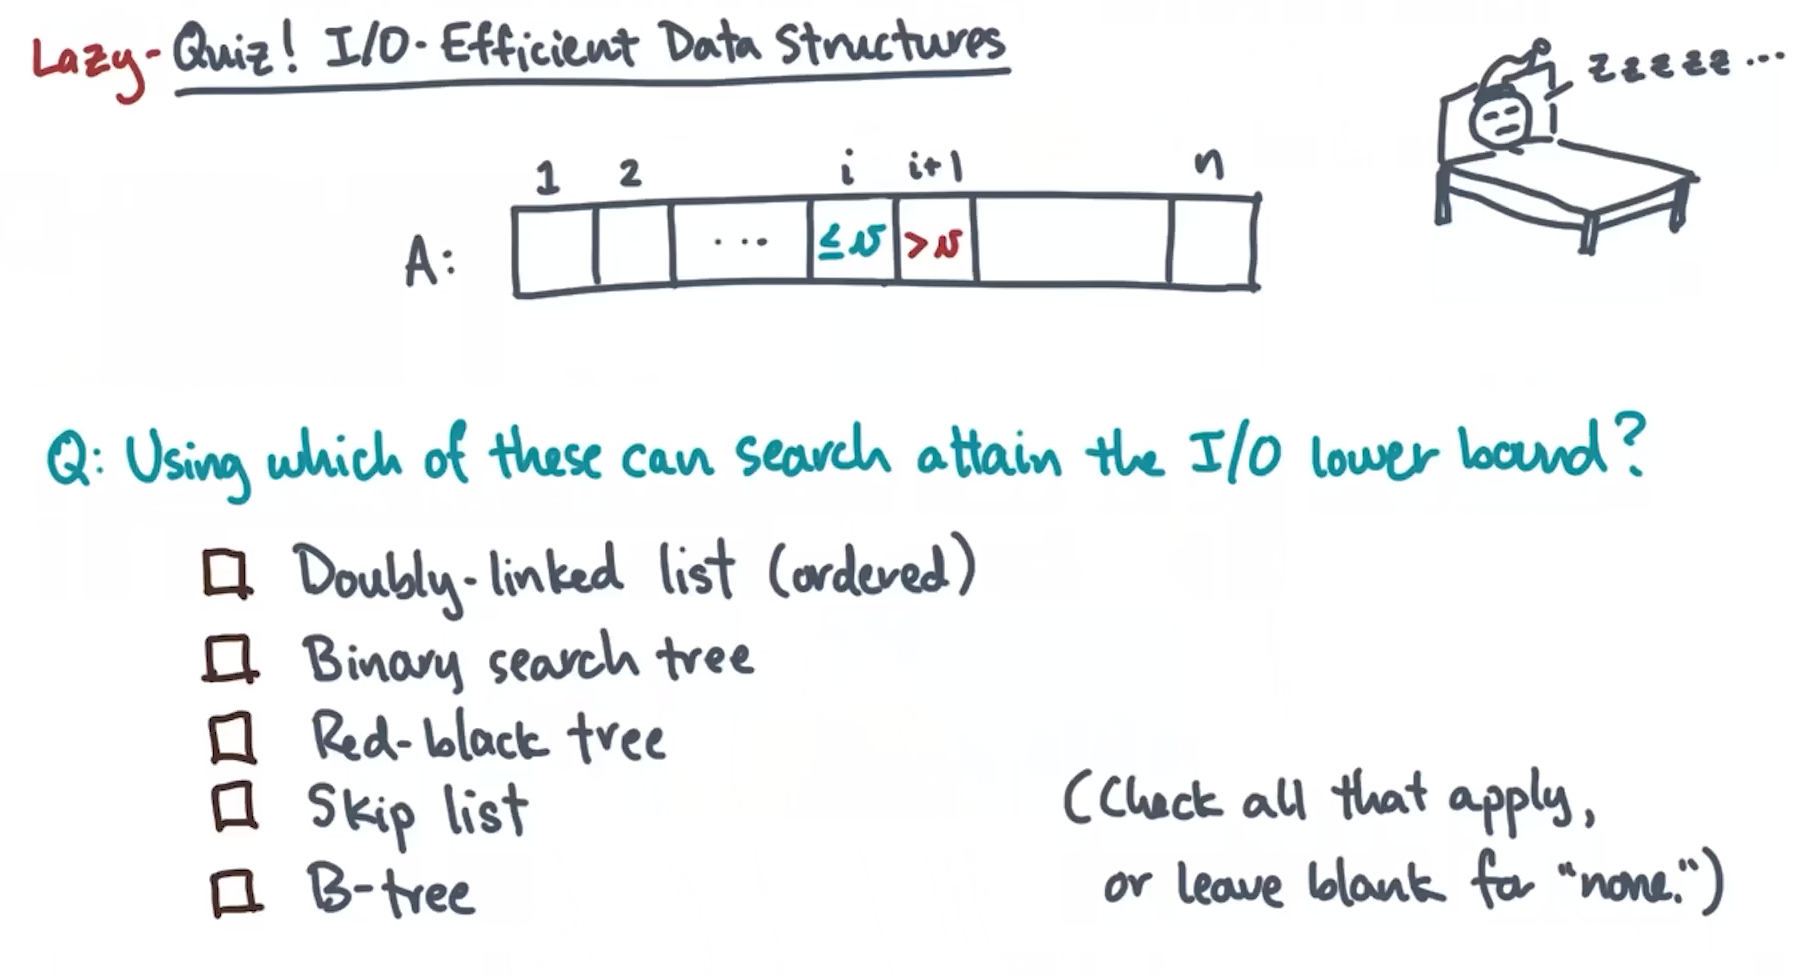 Lazy-Quiz! I/O-Efficient Data Structures
zzzzz...
1 2 i i+1 n
A: ... ≤v >v
Q: Using which of these can search attain the I/O lower bound?
Doubly-linked list (ordered)
Binary search tree
Red-black tree
Skip list
B-tree
(Check all that apply,
or leave blank for "none.")